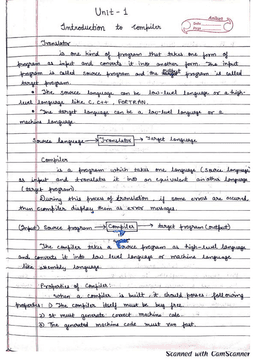 Unit - 1
Introduction to Compiler
Translator
is one kind of program that takes one form of
program as input and converts it into another form. The input
program is called source program and the output program is called
target program.
• The source language can be low-level language or a high-
level language like C, C++, FORTRAN.
• The target language can be a low-level language or a
machine language.
Source language → Translator → Target language
Compiler
is a program which takes one language (source language)
as input and translate it into an equivalent another language
(target program).
During this process of translation if some errors are occured,
then compiler display them as error messages.
(Input) Source program → Compiler → target program (output)
The compiler takes a source program as high-level language
and converts it into low level language or machine language
like assembly language
Properties of Compiler:
When a compiler is built, it should posses following
properties: 1) The compiler itself must be bug free.
2) It must generate correct machine code.
3) The generated machine code must run fast.
Scanned with CamScanner